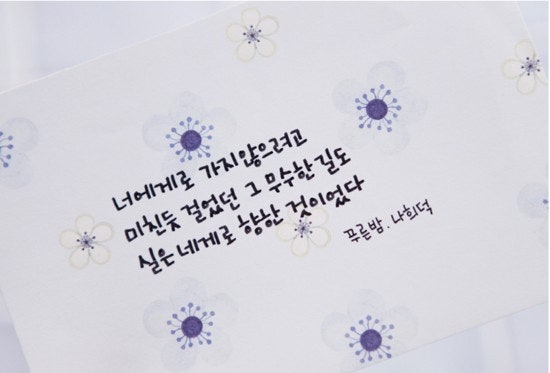 너에게로 가지않으려고
미친듯 걸었던 그 무수한 길도
실은 네게로 향한 것이었다
푸른밤. 나희덕